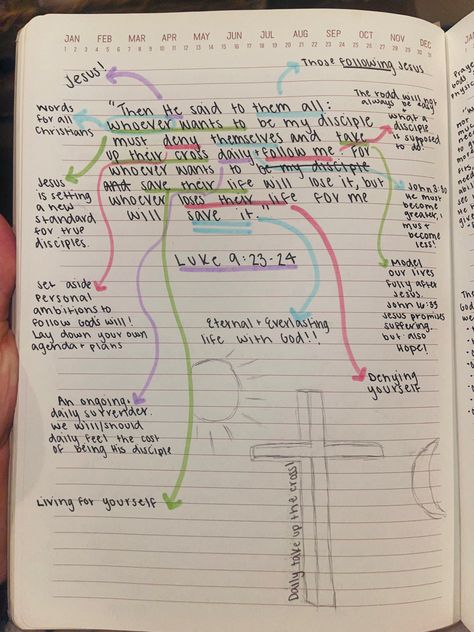 JAN FEB MAR APR MAY JUN JUL AUG SEP OCT NOV DEC
1 2 3 4 5 6 7 8 9 10 11 12 13 14 15 16 17 18 19 20 21 22 23 24 25 26 27 28 29 30 31
Jesus!
Those following Jesus
words
for all
Christians
"Then He said to them all:
whoever wants to be my disciple
must deny themselves and take
up their cross daily + follow me. For
whoever wants to be my disciple
and save their life will lose it, but
whoever loses their life for me
will save it."
Luke 9:23-24
The road will not
always be easy +
what a
disciple
is supposed
to do!
Jesus
is setting
a new
standard
for true
disciples.
John 3:30
He must
become
greater, i
must
become
less!
Set aside
personal
ambitions to
follow Gods will!
Lay down your own
agenda + plans
Model
our lives
fully after
Jesus.
John 16:33
Jesus promises
suffering.
but also
Hope!
Eternal + Everlasting
life with God!!
Denying
yourself
An ongoing,
daily surrender.
we will/should
daily feel the cost
of being His disciple
Living for yourself
Daily take up the cross!